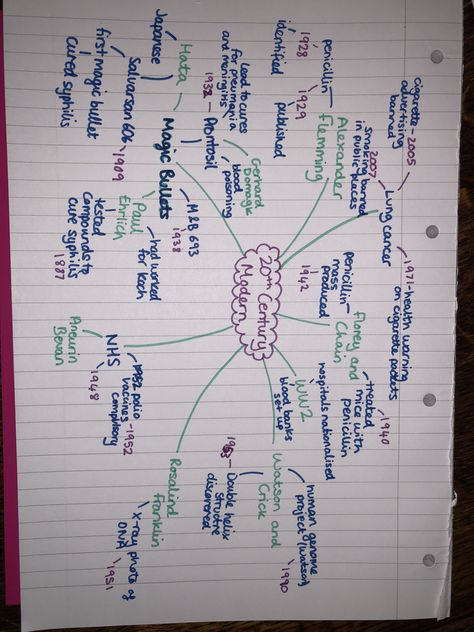 20th Century
Modern
Magic Bullets
Hata
Japanese
Salvarson 606
1909
first magic bullet
cured syphilis
Paul
Ehrlich
had worked
for Koch
tested
compounds to
cure syphilis
1887
M&B 693
1938
Prontosil
1932
lead to cures
for pneumonia
and meningitis
Gerhard
Domagk
blood
poisoning
Alexander
Flemming
penicillin
1928
identified
1929
published
Lung cancer
smoking banned
in public places
2007
cigarette
advertising
banned
2005
1971-health warning
on cigarette packets
Florey and
Chain
penicillin
mass
produced
1942
treated
mice with
penicillin
1940
WW2
blood banks
set up
hospitals nationalised
Watson and
Crick
human genome
project (Watson)
1990
Double helix
discovered
Rosalind
Franklin
x-ray photo of
DNA
1951
NHS
1948
Aneurin
Bevan
polio
vaccines
compulsory
1952